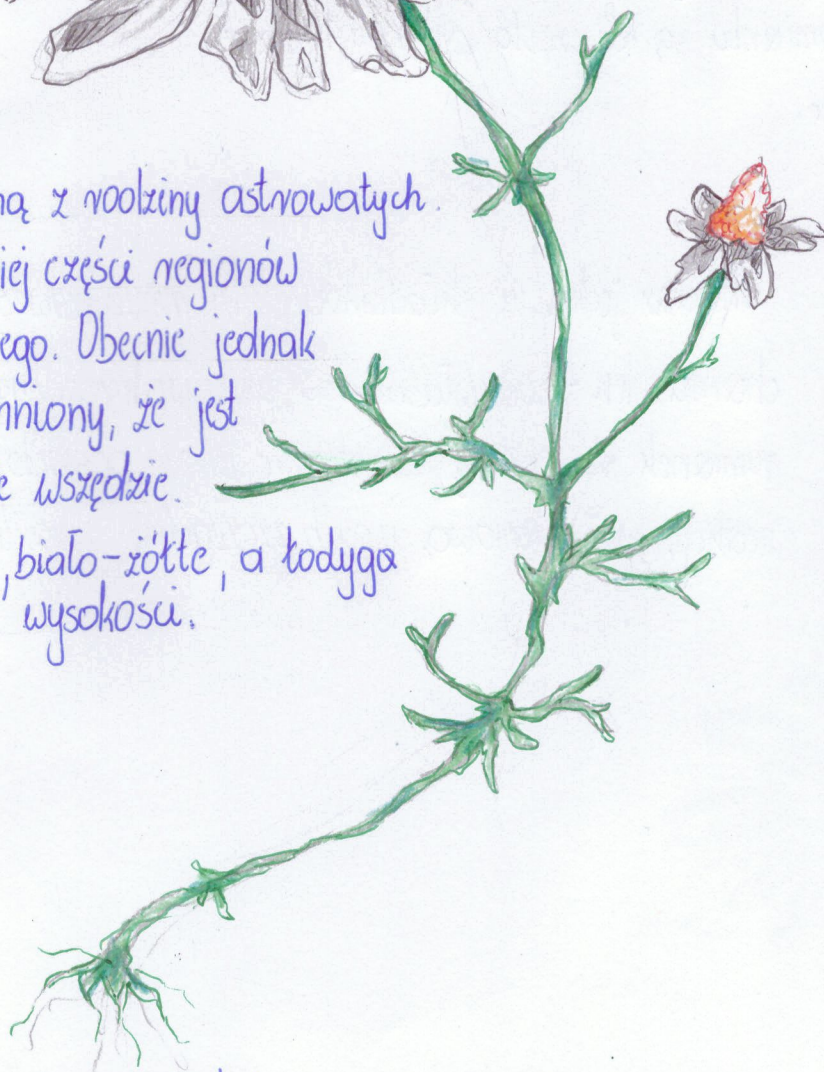 ną z rodziny astrowatych.
iej części regionów
ego. Obecnie jednak
hniony, że jest
e wszędzie.
, biało-żółte, a łodyga
wysokości.